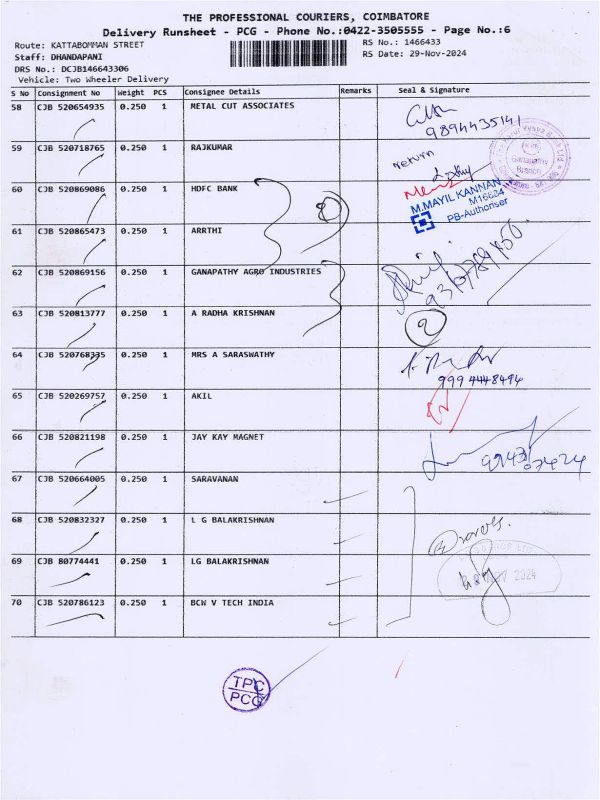 THE PROFESSIONAL COURIERS, COIMBATORE
Delivery Runsheet - PCG - Phone No.:0422-3505555 - Page No.:6
Route: KATTABOMMAN STREET
RS No.: 1466433
Staff: DHANDAPANI
RS Date: 29-Nov-2024
DRS No.: DCJB146643306
Vehicle: Two Wheeler Delivery
S No Consignment No Weight PCS Consignee Details Remarks Seal & Signature
58 CJB 520654935 0.250 1 METAL CUT ASSOCIATES
9894435141
59 CJB 520718765 0.250 1 RAJKUMAR
return
Ganapathy
Branch
60 CJB 520869086 0.250 1 HDFC BANK
M.MAYIL KANNAN
M16634
PB-Authoriser
61 CJB 520865473 0.250 1 ARRTHI
62 CJB 520869156 0.250 1 GANAPATHY AGRO INDUSTRIES
63 CJB 520813777 0.250 1 A RADHA KRISHNAN
2
64 CJB 520768335 0.250 1 MRS A SARASWATHY
999 4448494
65 CJB 520269757 0.250 1 AKIL
66 CJB 520821198 0.250 1 JAY KAY MAGNET
67 CJB 520664005 0.250 1 SARAVANAN
68 CJB 520832327 0.250 1 L G BALAKRISHNAN
69 CJB 80774441 0.250 1 LG BALAKRISHNAN
2024
70 CJB 520786123 0.250 1 BCW V TECH INDIA
TPC
PCG